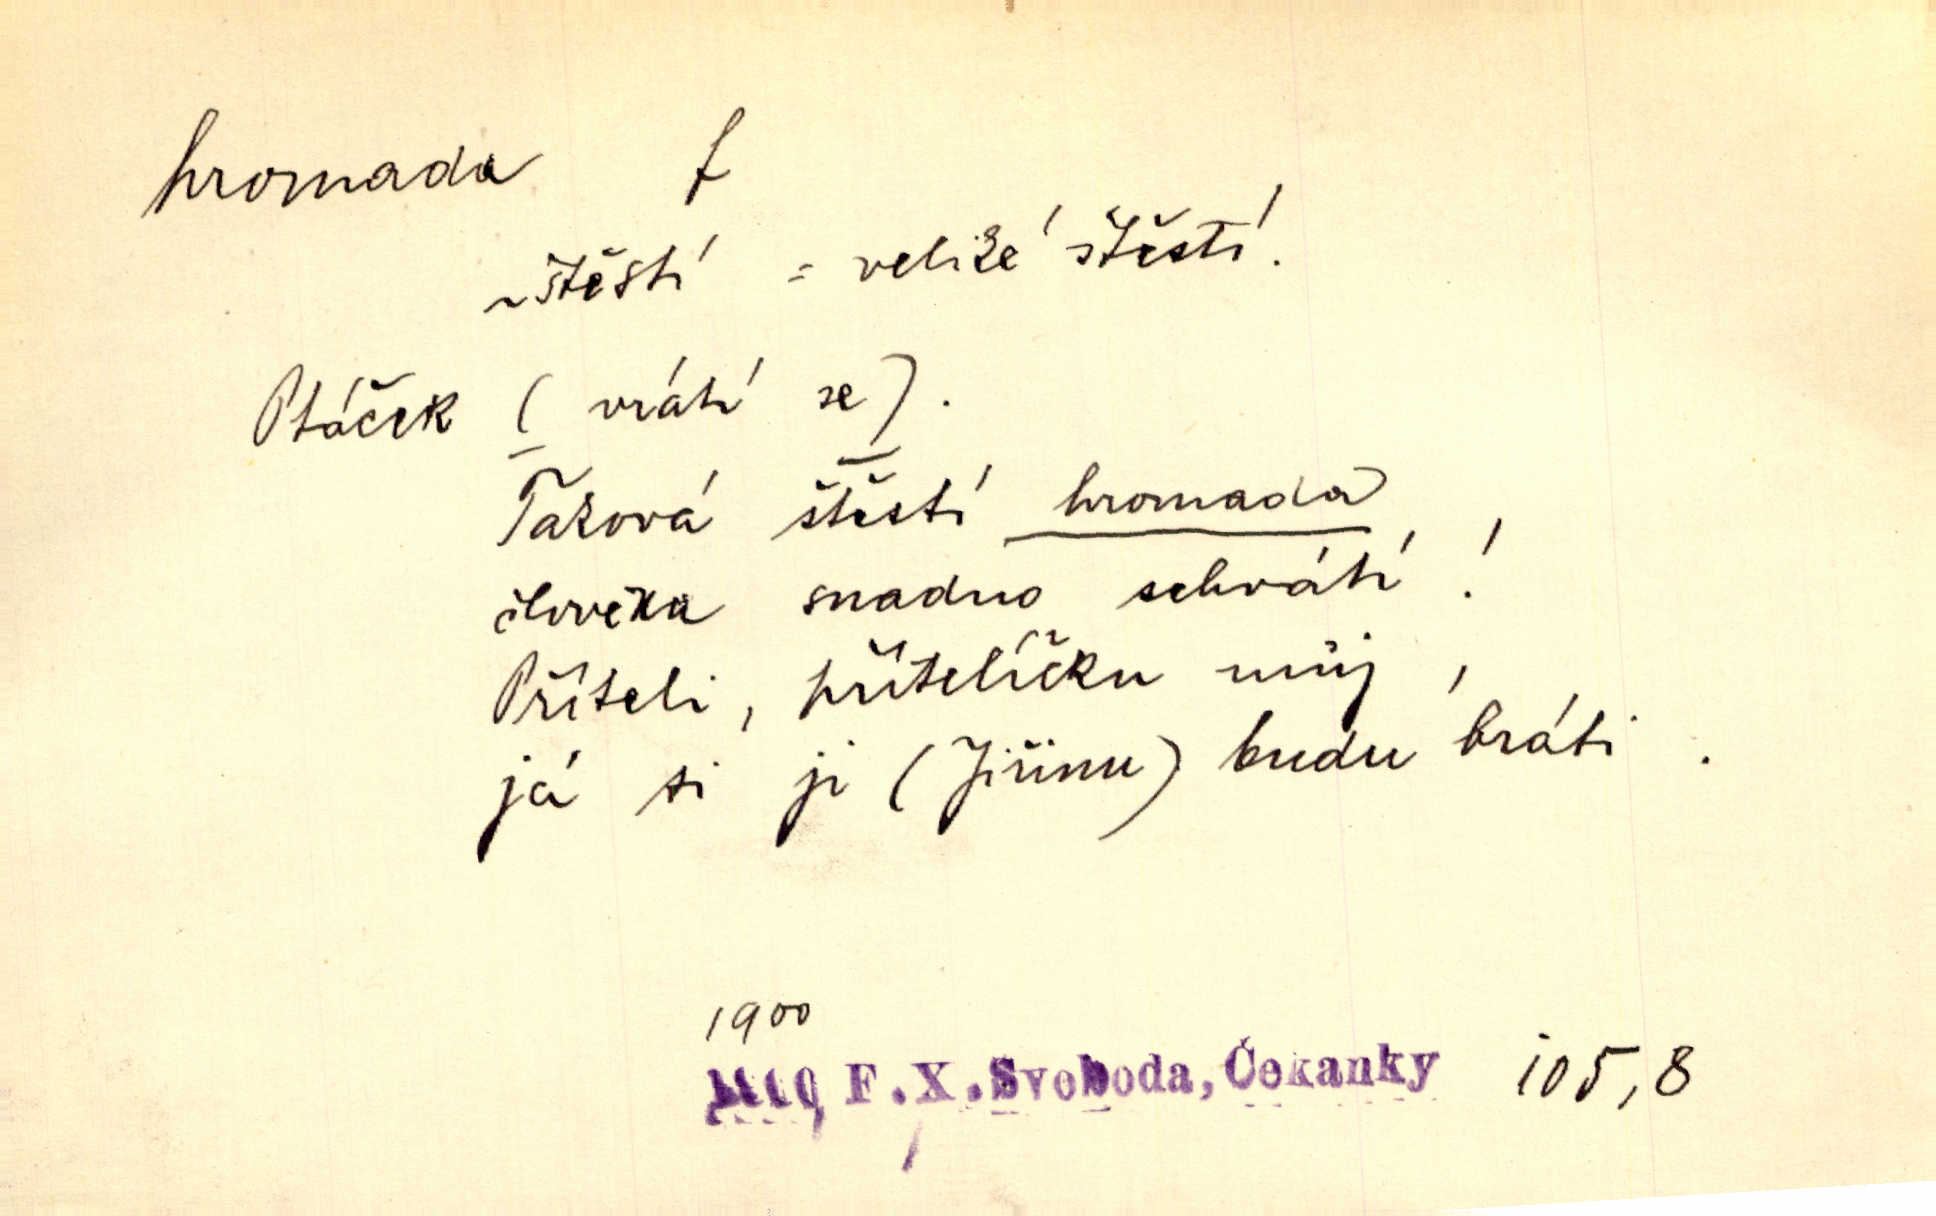 hromada f
~ štěstí = veliké štěstí.
Ptáček (vrátí se).
Taková štěstí hromada
člověka snadno schvátí!
Příteli, přítelíčku můj,
já si ji (Jiřinu) budu bráti.
1900
F.X.Svoboda, Čekanky 105,8